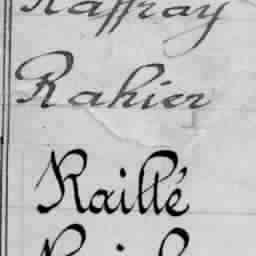 Raffray
Rahier
Raillé